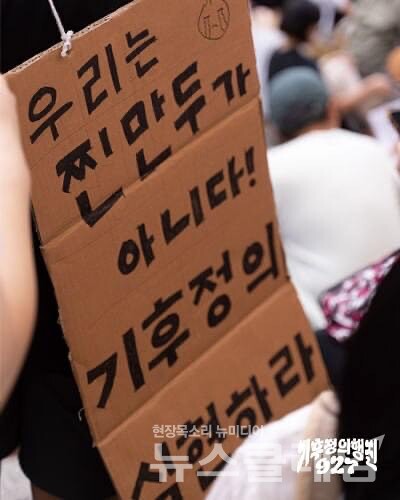 우리는
찐만두가
아니다!
기후정의
현장목소리 뉴미디어
뉴스클레임
기후정의행진
927